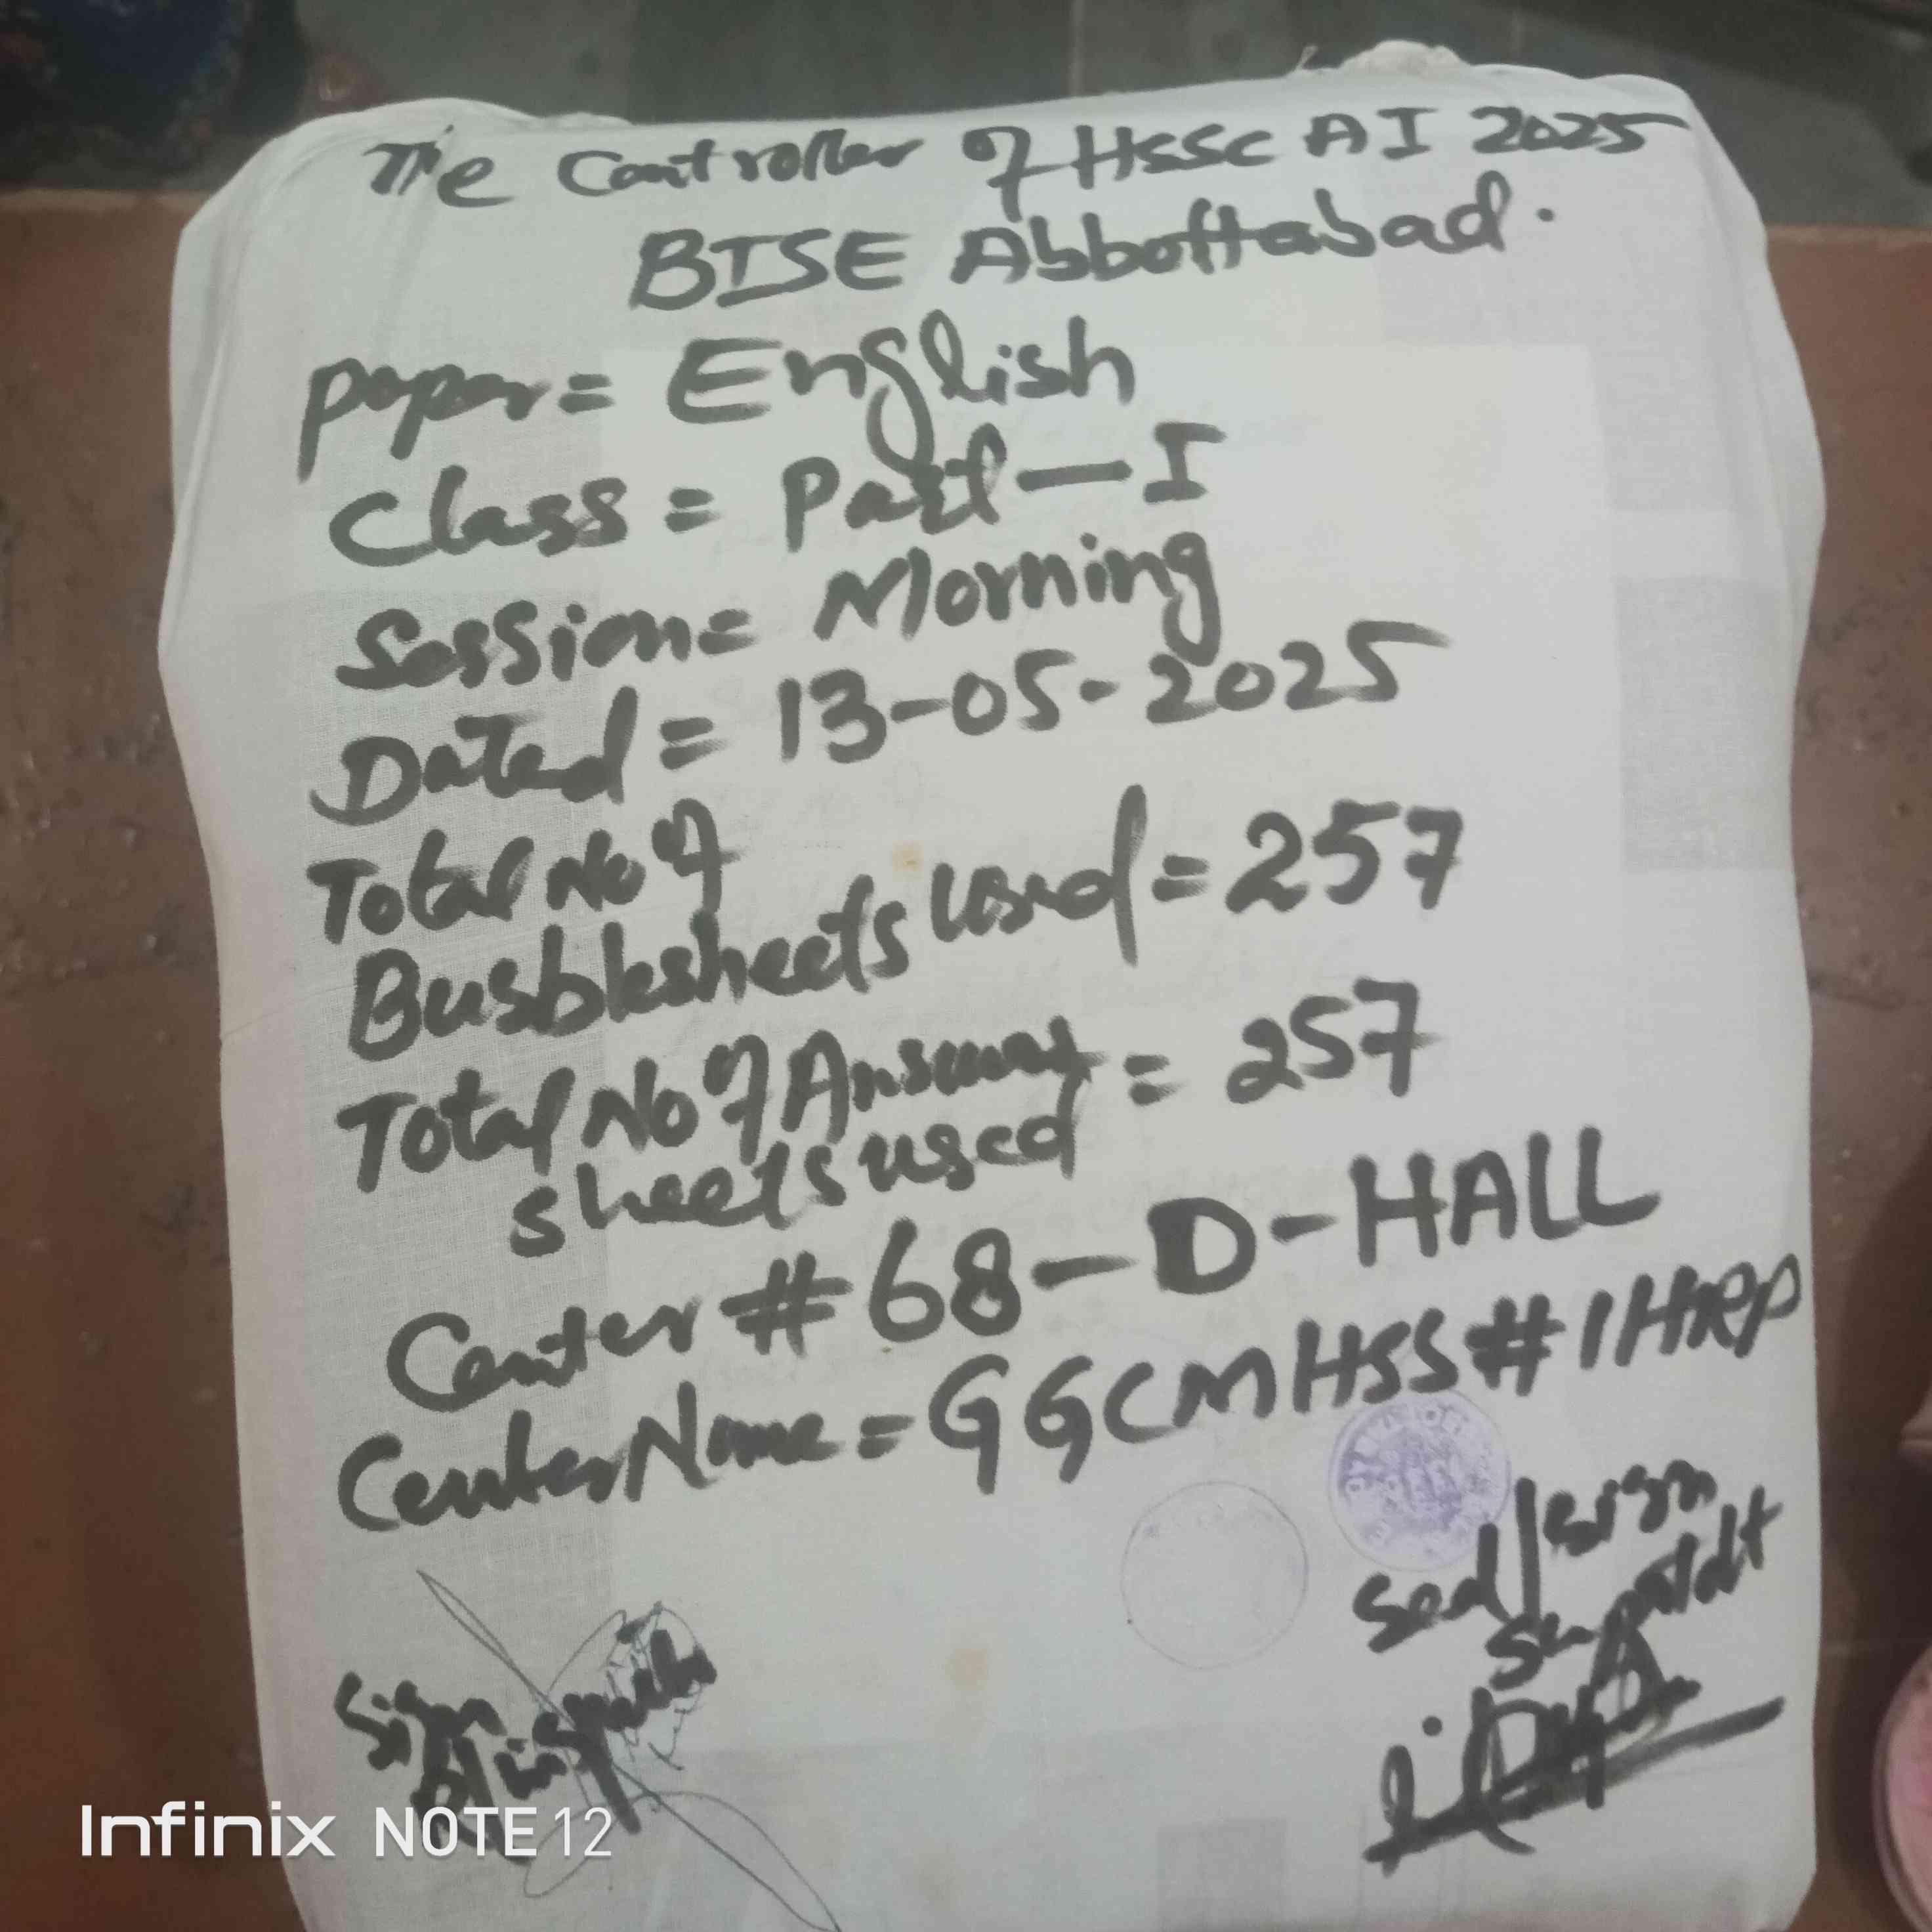 The Controller of HSSC A I 2025
BISE Abbottabad.
Paper = English
Class = Part - I
Session = Morning
Dated = 13-05-2025
Total No of
Busbblesheets used = 257
Total No of Answer = 257
sheets used
Center # 68 - D - HALL
Center Name = GGCMHSS # 1 HRP
Sed/sign
Supatdt
Sign
Infinix NOTE 12